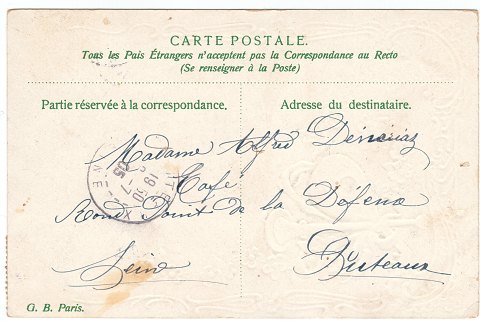 CARTE POSTALE.
Tous les Pais Étrangers n'acceptent pas la Correspondance au Recto
(Se renseigner à la Poste)
Partie réservée à la correspondance.
Adresse du destinataire.
Madame Alfred
Café
Rond Point de la Défense
Puteaux
Seine
G. B. Paris.